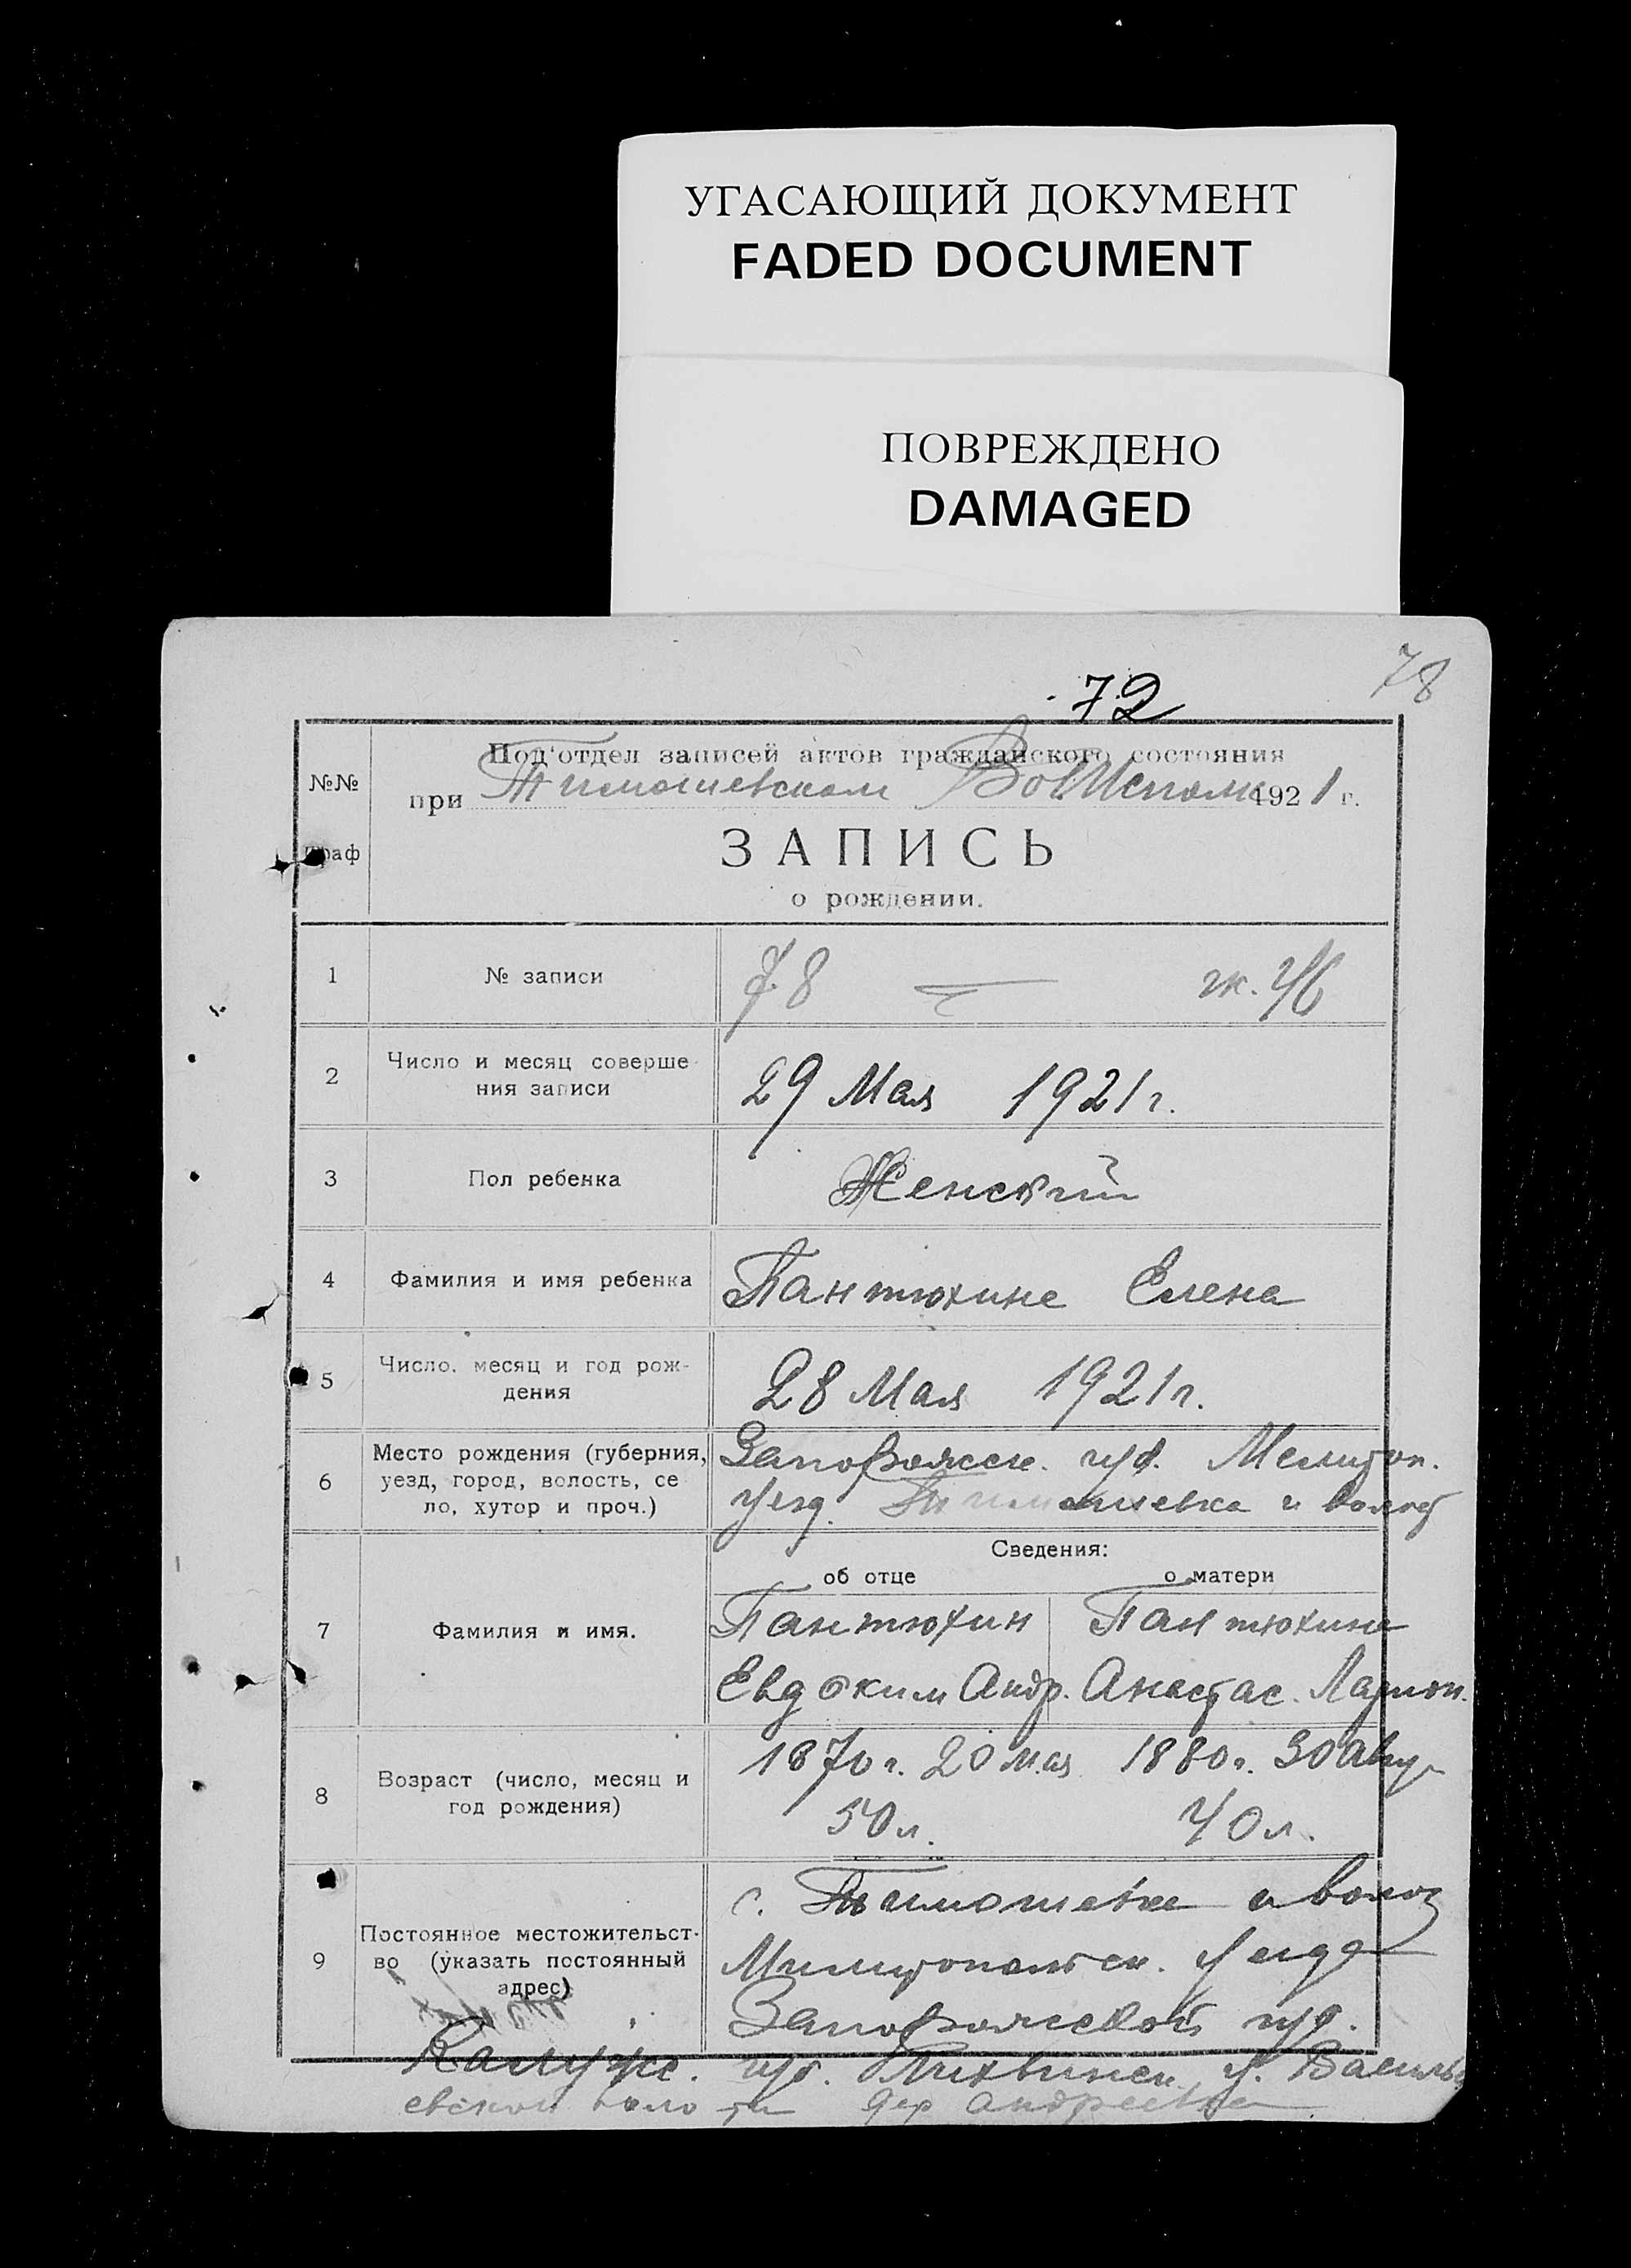 УГАСАЮЩИЙ ДОКУМЕНТ
FADED DOCUMENT
ПОВРЕЖДЕНО
DAMAGED
78
72
№№
граф
Под'отдел записей актов гражданского состояния
при Тимошевском ВолИсполк 1921 г.
ЗАПИСЬ
о рождении.
1 № записи 78 — 
2 Число и месяц соверше-
ния записи 29 Мая 1921 г.
3 Пол ребенка Женский
4 Фамилия и имя ребенка Пантюхина Елена
5 Число, месяц и год рож-
дения 28 Мая 1921 г.
6 Место рождения (губерния, Запорожск. губ. Мелитоп.
уезд, город, волость, се уезд. Тимошевка и волост
ло, хутор и проч.)
Сведения:
об отце о матери
7 Фамилия и имя. Пантюхин Пантюхина
Евдоким Андр. Анастас. Ларион.
8 Возраст (число, месяц и 1870 г. 20 мая 1880 г. 30 Авгу
год рождения) 50 л. 40 л.
с. Тимошевка и волос
9 Постоянное местожительст-
во (указать постоянный Мелитопольск. уезда
адрес) Запорожской губ.
Калужс. губ. Лихвинск. у. Василь
евской волости дер Андреевка